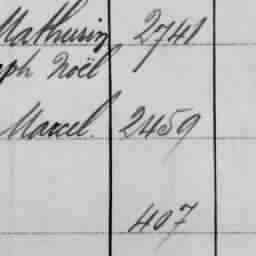 Mathurin 2741
ph Noël
Marcel. 2459
407